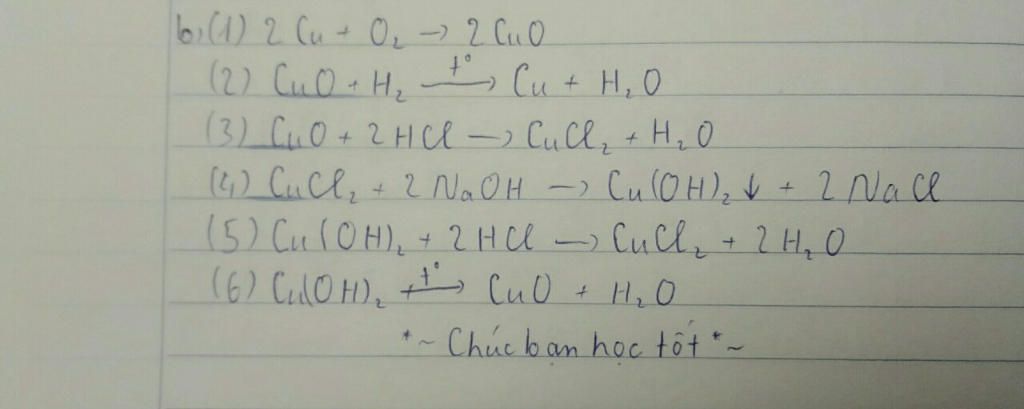 b,(1) 2 Cu + O₂ → 2 CuO
(2) CuO + H₂ —t°→ Cu + H₂O
(3) CuO + 2 HCl → CuCl₂ + H₂O
(4) CuCl₂ + 2 NaOH → Cu(OH)₂ ↓ + 2 NaCl
(5) Cu(OH)₂ + 2 HCl → CuCl₂ + 2 H₂O
(6) Cu(OH)₂ —t°→ CuO + H₂O
*~ Chúc bạn học tốt *~